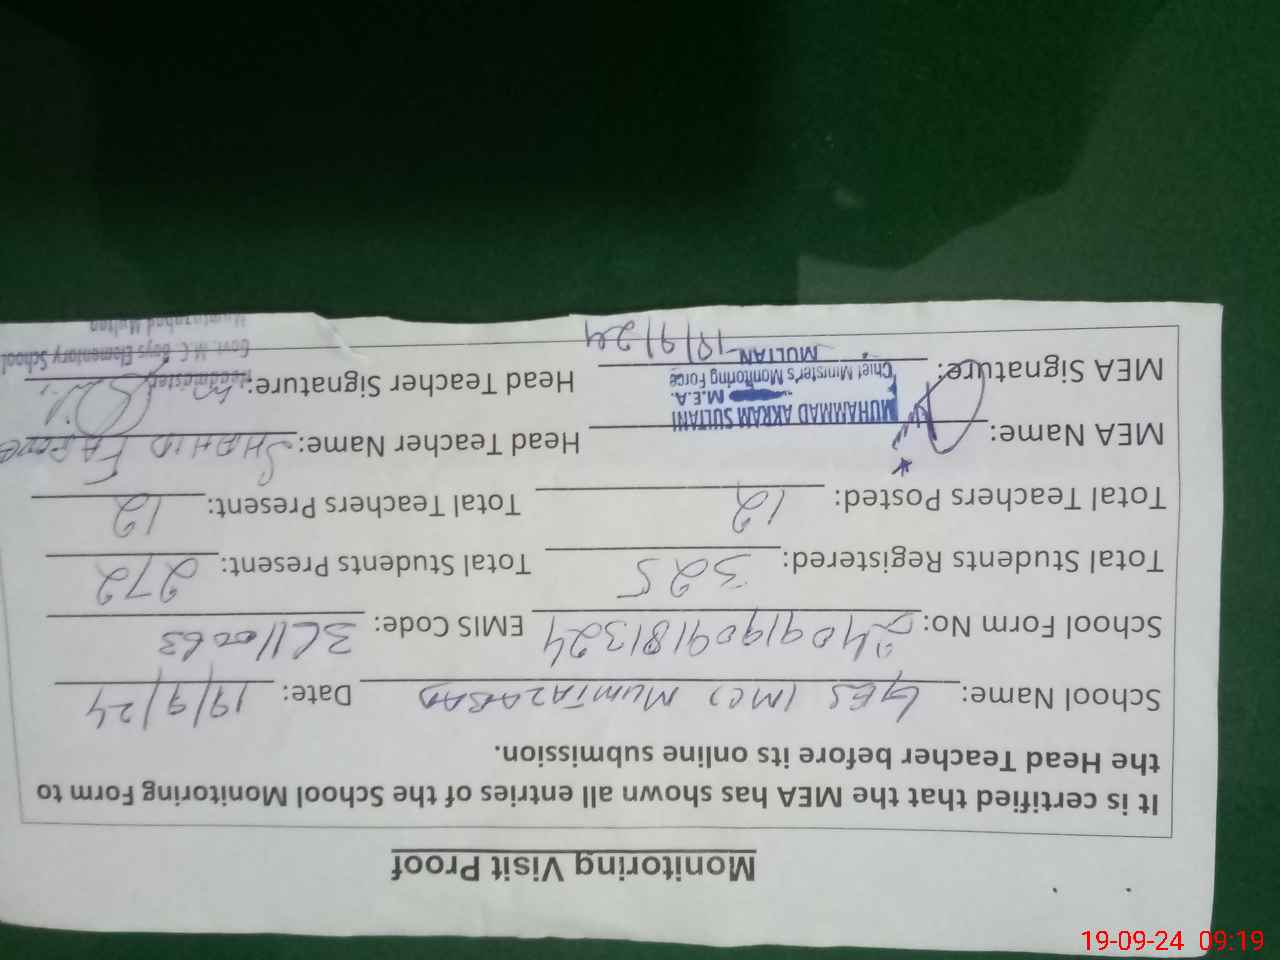 Monitoring Visit Proof
It is certified that the MEA has shown all entries of the School Monitoring Form to
the Head Teacher before its online submission.
School Name: GES (MC) MUMTAZABAD Date: 19/9/24
School Form No: 24091909181324 EMIS Code: 36110063
Total Students Registered: 325 Total Students Present: 272
Total Teachers Posted: 12 Total Teachers Present: 12
MEA Name: MUHAMMAD AKRAM SULTANI Head Teacher Name: SHAHID FAROOQ
M.E.A.
Chief Minister's Monitoring Force
MEA Signature: MULTAN Head Teacher Signature:
Headmaster
Govt. M.C. Boys Elementary School
Mumtazabad Multan
19/9/24
19-09-24 09:19